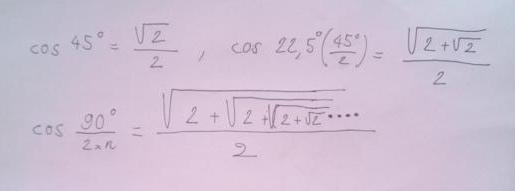 cos 45° = √2/2 , cos 22,5° (45°/2) = √(2+√2)/2
cos 90°/(2×n) = √(2+√(2+√(2+√2 ····/2